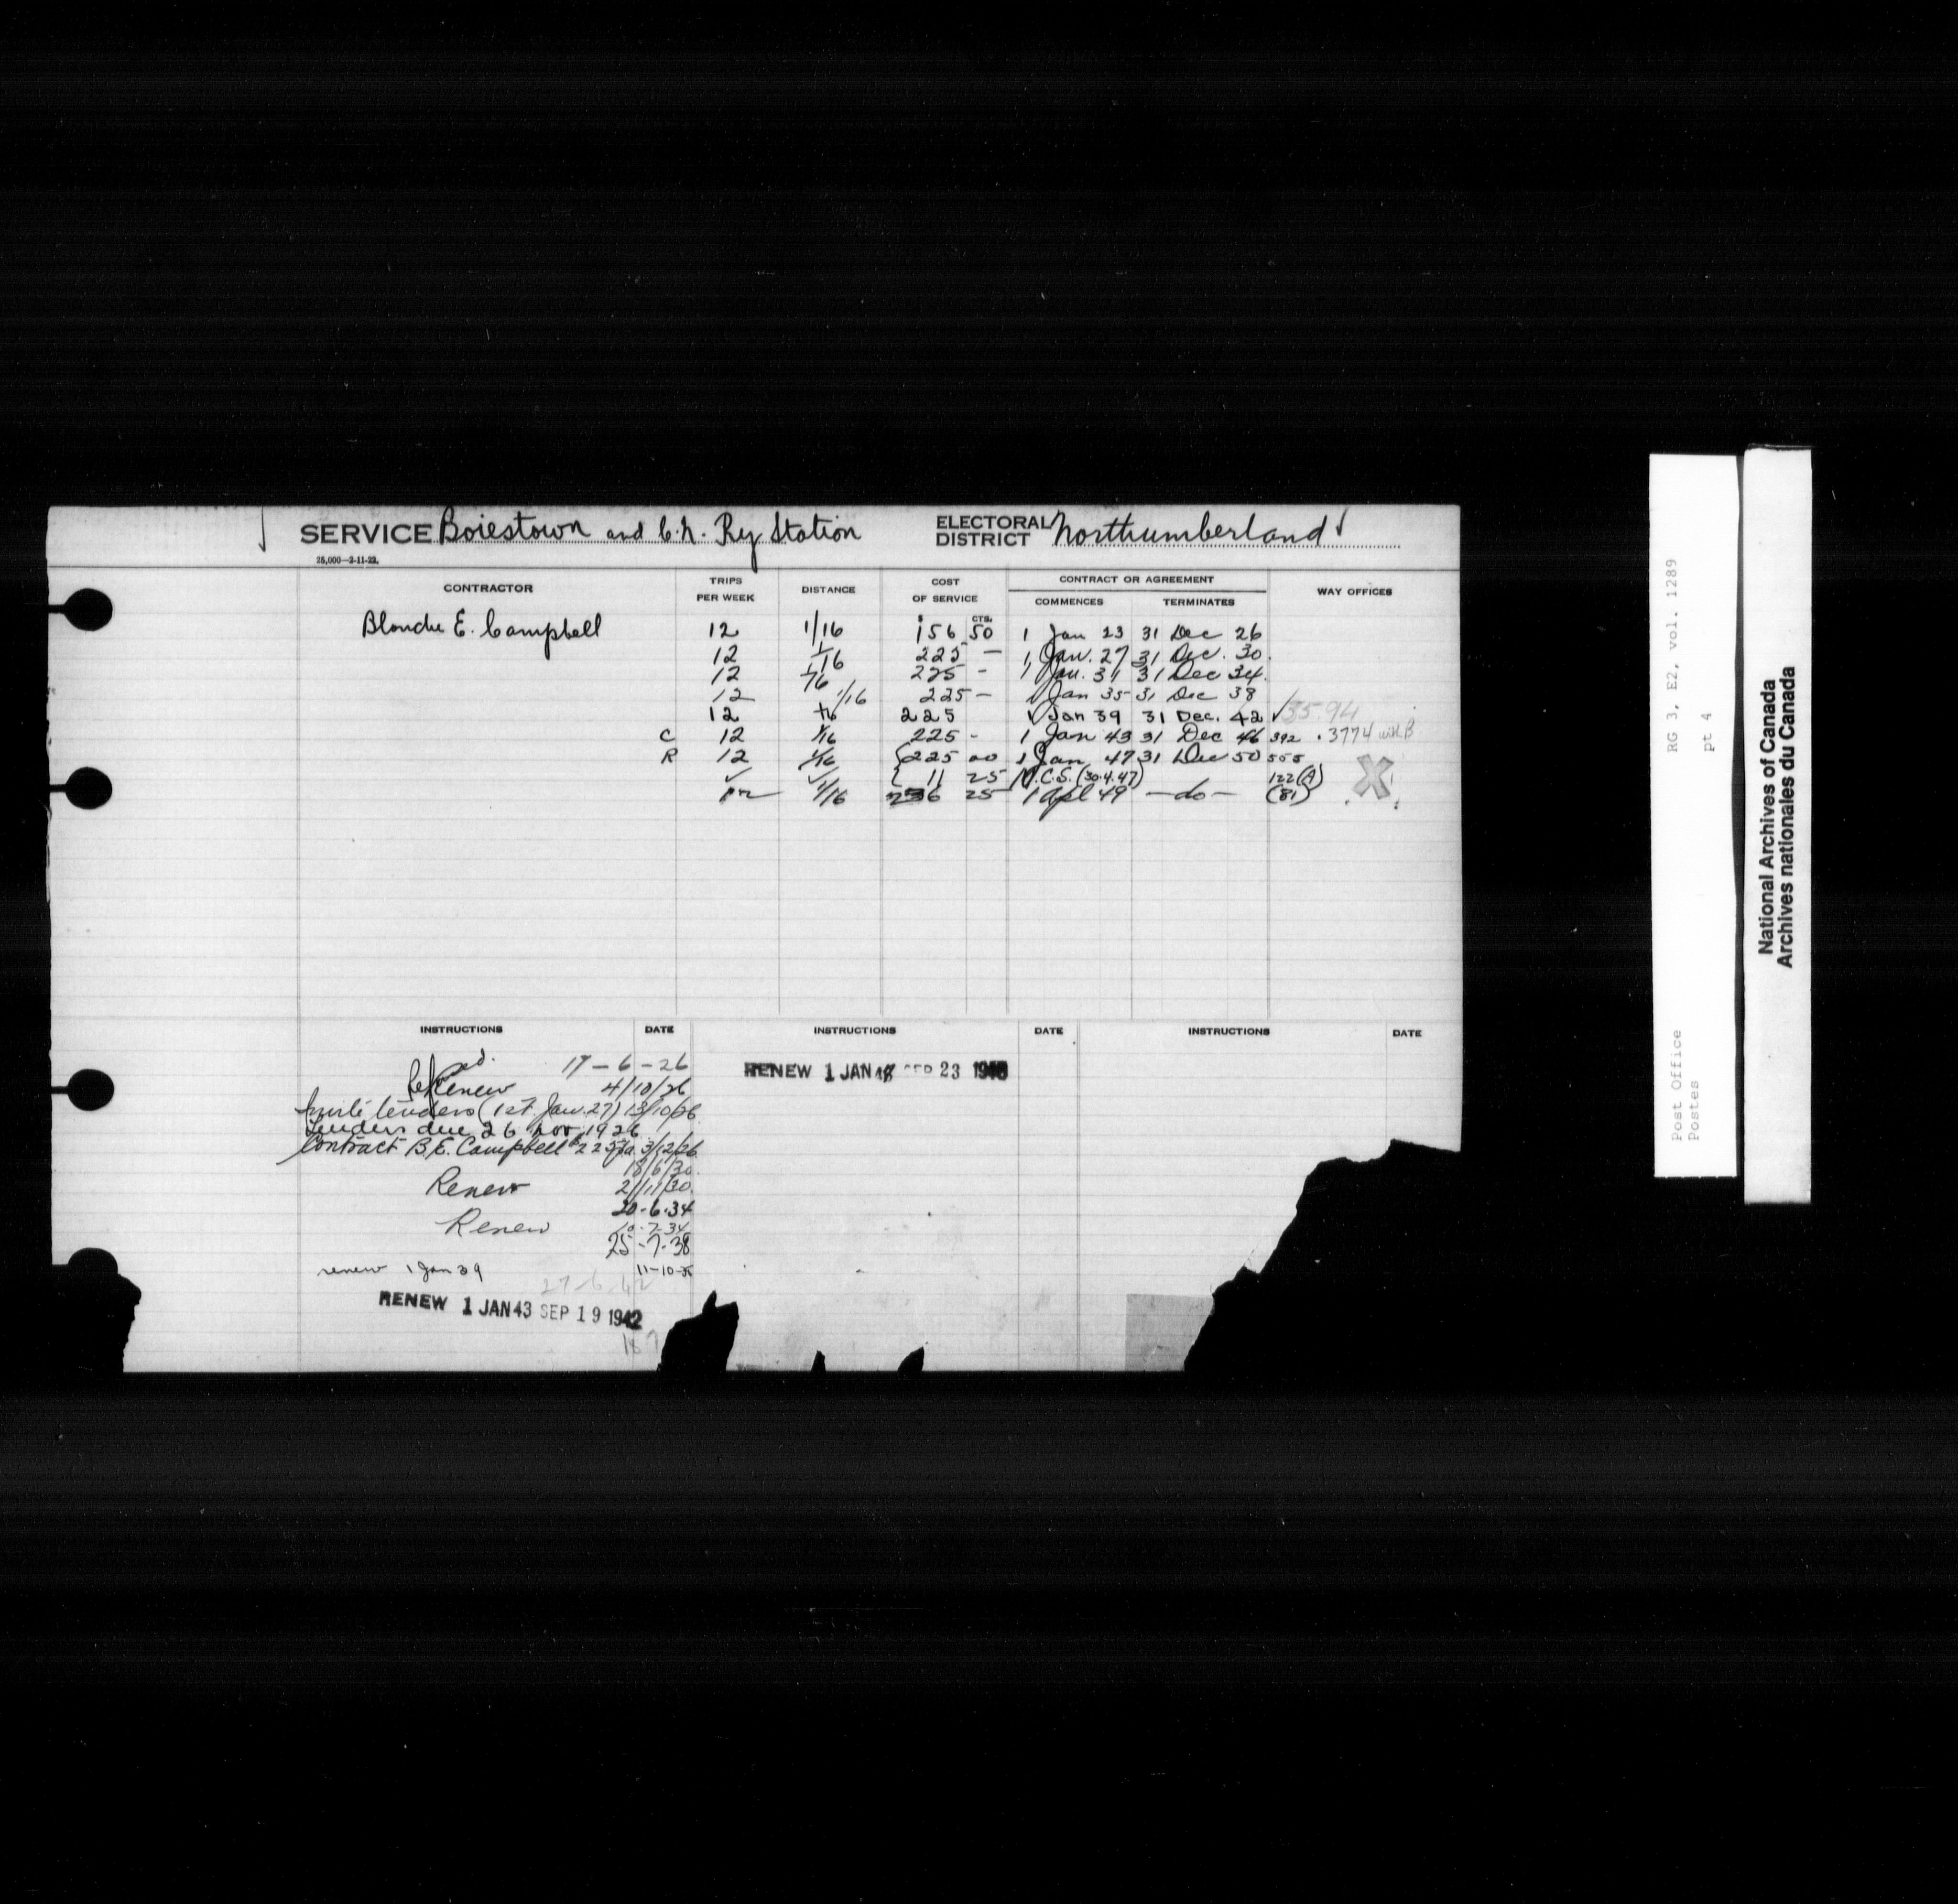 SERVICE Boiestown and C.N. Ry Station ELECTORAL DISTRICT Northumberland
25,000—2-11-22.
CONTRACTOR TRIPS PER WEEK DISTANCE COST OF SERVICE CONTRACT OR AGREEMENT COMMENCES TERMINATES WAY OFFICES
$ CTS.
Blanche E. Campbell 12 1/16 156 50 1 Jan 23 31 Dec 26
12 1/16 225 — 1 Jan. 27 31 Dec. 30.
12 1/16 225 - 1 Jan. 31 31 Dec 34.
12 1/16 225 — 1 Jan 35 31 Dec 38
12 1/16 225 1 Jan 39 31 Dec. 42 √ 35.94
C 12 1/16 225 - 1 Jan 43 31 Dec 46 392 . 3774 with B
R 12 1/16 { 225 00 1 Jan 47 31 Dec 50 555
√ √ { 11 25 M.C.S. (30.4.47) 122(A)
12 1/16 236 25 1 Apl 49 — do — (81)
X
INSTRUCTIONS DATE INSTRUCTIONS DATE INSTRUCTIONS DATE
17-6-26
Renew 4/10/26
Invite tenders (1st. Jan. 27) 13/10/26
Tenders due 26 Nov 1926
Contract B.E. Campbell $225 pa. 3/12/26
18/6/30.
Renew 21/11/30.
20-6-34
Renew 10-7-34
25-7-38
renew 1 Jan 39 11-10-38
27-6-42
RENEW 1 JAN 43 SEP 19 1942
RENEW 1 JAN SEP 23 1946
RG 3, E2, vol. 1289
pt 4
Post Office
Postes
National Archives of Canada
Archives nationales du Canada